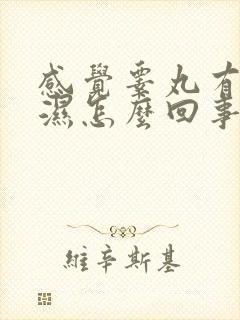 感覺睾丸有
濕怎麼回事
維辛斯基